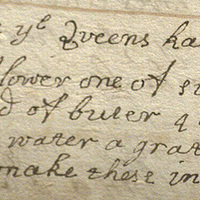 yᵉ Queens ha
lower one of su
d of buter 4
water a grat
make these in